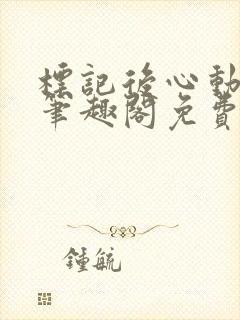 標記後心動
筆趣閣免費
鍾毓